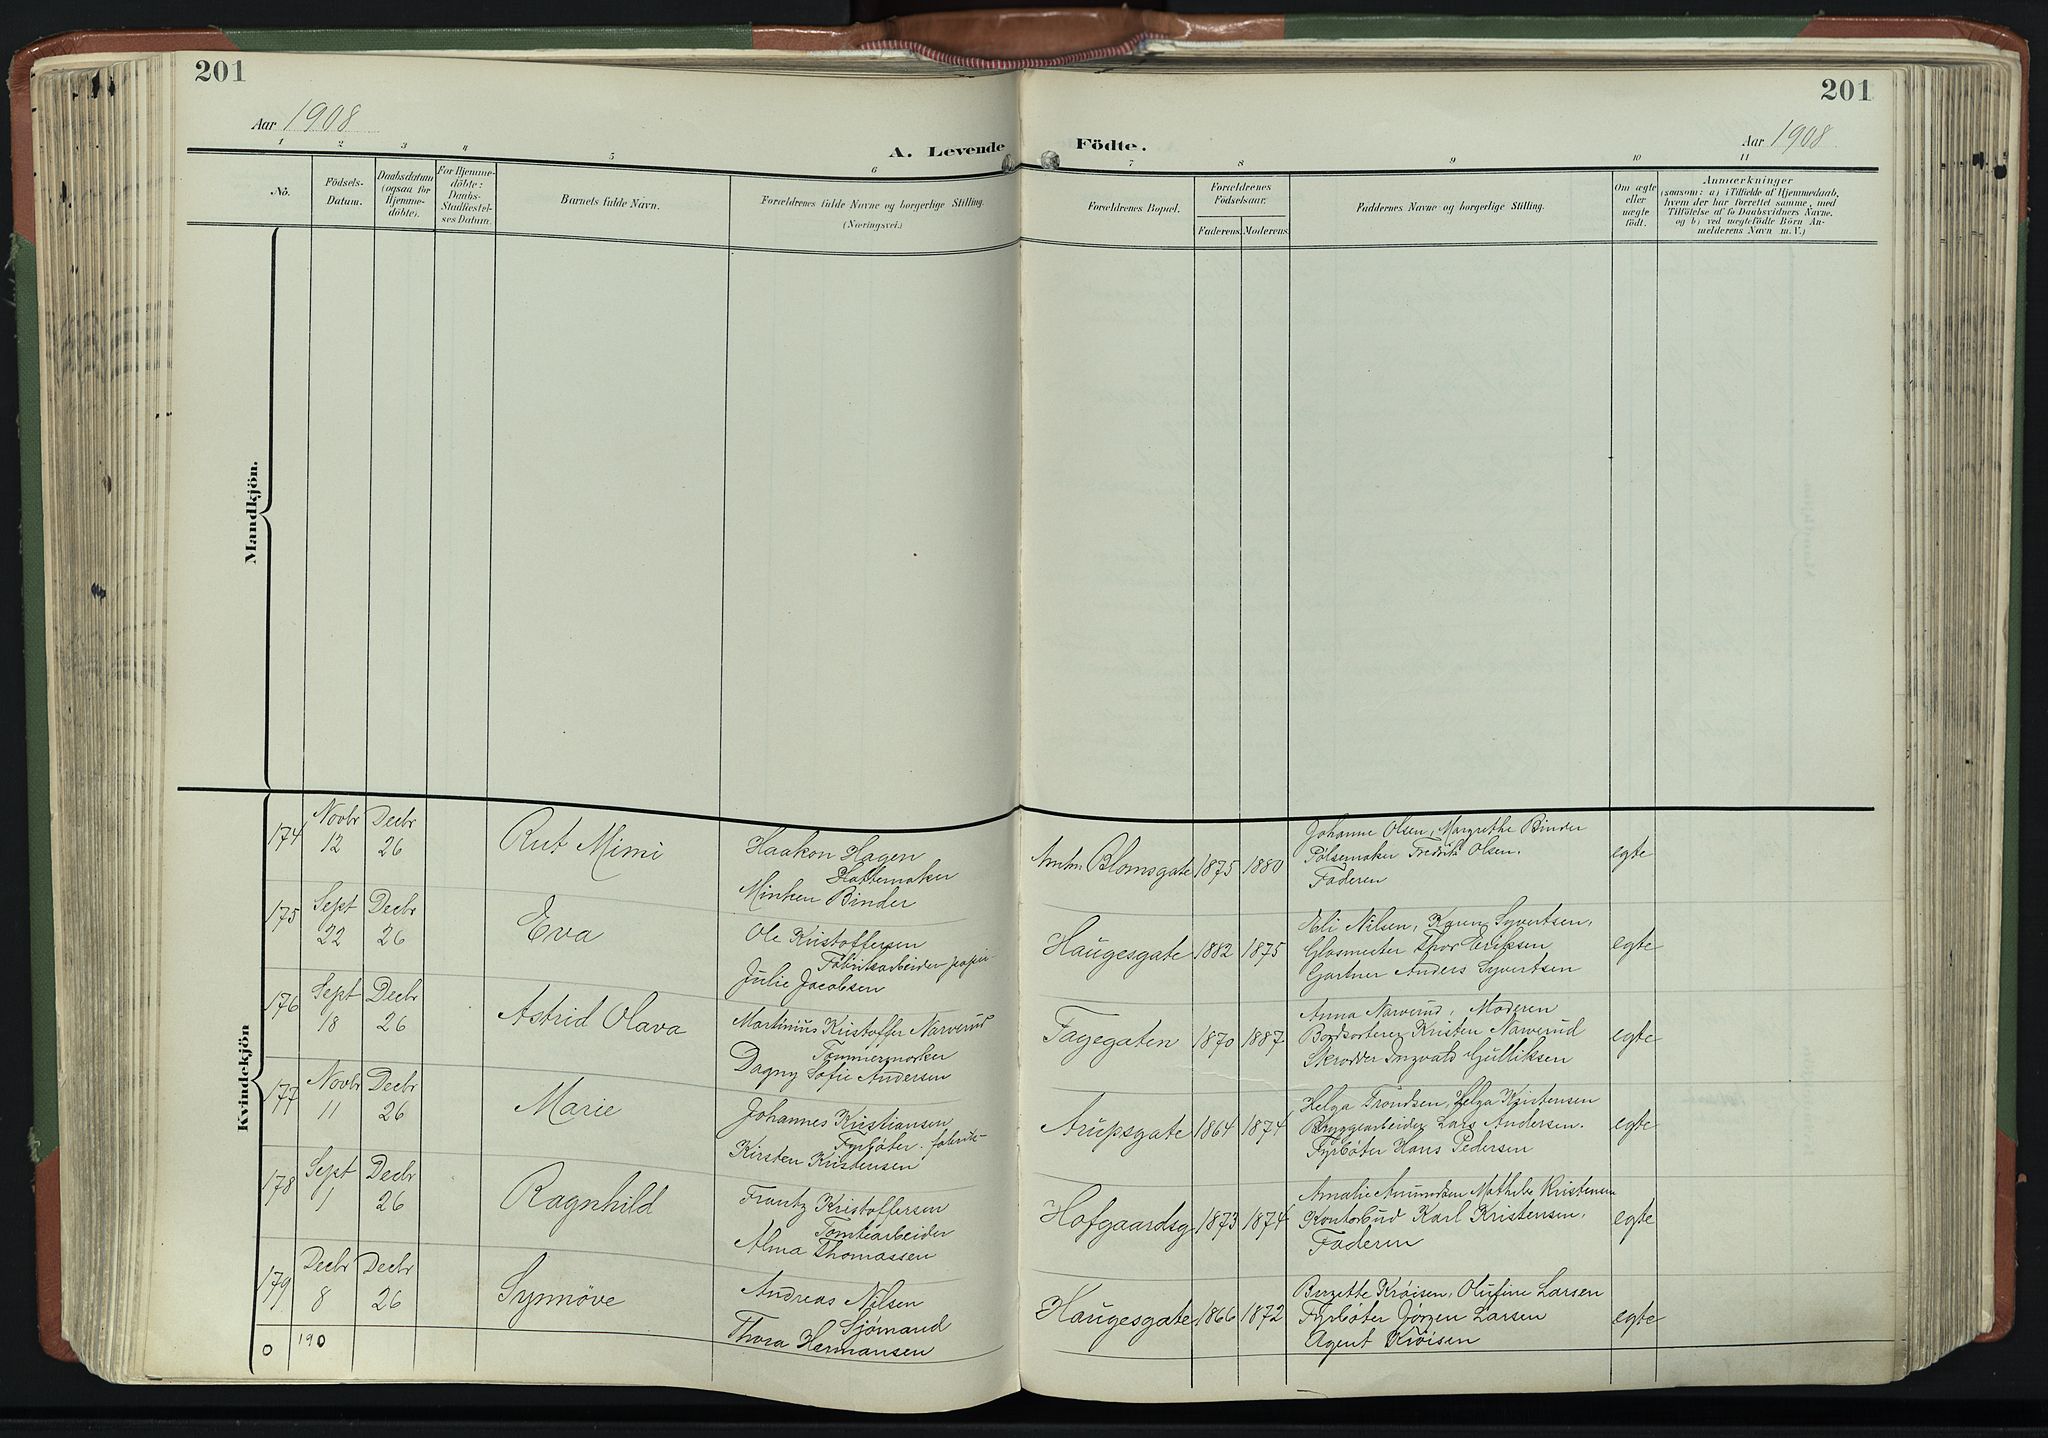 201
201
Aar 1908
Aar 1908
A. Levende Födte.
1 2 3 4 5 6 7 8 9 10 11
No.
Födsels-
Datum.
Daabsdatum
(ogsaa for
Hjemme-
döbte).
For Hjemme-
döbte:
Daabs-
Stadfæstel-
ses Datum.
Barnets fulde Navn.
Forældrenes fulde Navne og borgerlige Stilling.
(Næringsvei.)
Forældrenes Bopæl.
Forældrenes
Födselsaar.
Faderens.
Moderens.
Faddernes Navne og borgerlige Stilling.
Om ægte
eller
uægte
födt.
Anmærkninger
(saasom: a) i Tilfælde af Hjemmedaab,
hvem der har forrettet samme, med
Tilföielse af to Daabsvidners Navne.
og b) ved uægtefödte Börn An-
melderens Navn m. V.)
Mandkjön.
Kvindekjön
174
Novbr
12
Decbr
26
Rut Mimi
Haakon Hagen
Hattemaker
Minken Binder
Amtm. Blomsgate
1875
1880
Johanne Olsen, Margrethe Binder
Pølsemaker Fredrik Olsen.
Faderen
egte
175
Sept
22
Decbr
26
Eva
Ole Kristoffersen
Fabriksarbeider papir-
Julie Jacobsen
Haugesgate
1882
1875
Eli Nilsen, Karen Syvertsen,
Glasmester Thor Eriksen
Gartner Anders Syvertsen
egte
176
Sept
18
Decbr
26
Astrid Olava
Martinius Kristoffer Narverud
Tømmermerker
Dagny Sofie Andersen
Fagegaten
1870
1887
Anna Narverud, Moderen
Bordsorterer Kristen Narverud
Skrædder Ingvald Gulliksen
egte
177
Novbr
11
Decbr
26
Marie
Johannes Kristiansen
Fyrbøter. fabrik-
Kirsten Kristensen
Arupsgate
1864
1874
Helga Trondsen, Helga Kristensen
Bryggearbeider Lars Andersen.
Fyrbøter Hans Pedersen
egte
178
Sept
1
Decbr
26
Ragnhild
Frantz Kristoffersen
Tomtearbeider
Alma Thomassen
Hofgaardsg
1873
1874
Amalie Amundsen Mathilde Kristensen
Kontorbud Karl Kristensen,
Faderen
egte
179
Decbr
8
Decbr
26
Synnøve
Andreas Nilsen
Sjømand
Thora Hermansen
Haugesgate
1866
1872
Birgette Krøisen, Olufine Larsen
Fyrbøter Jørgen Larsen
Agent Krøisen
egte
0
190